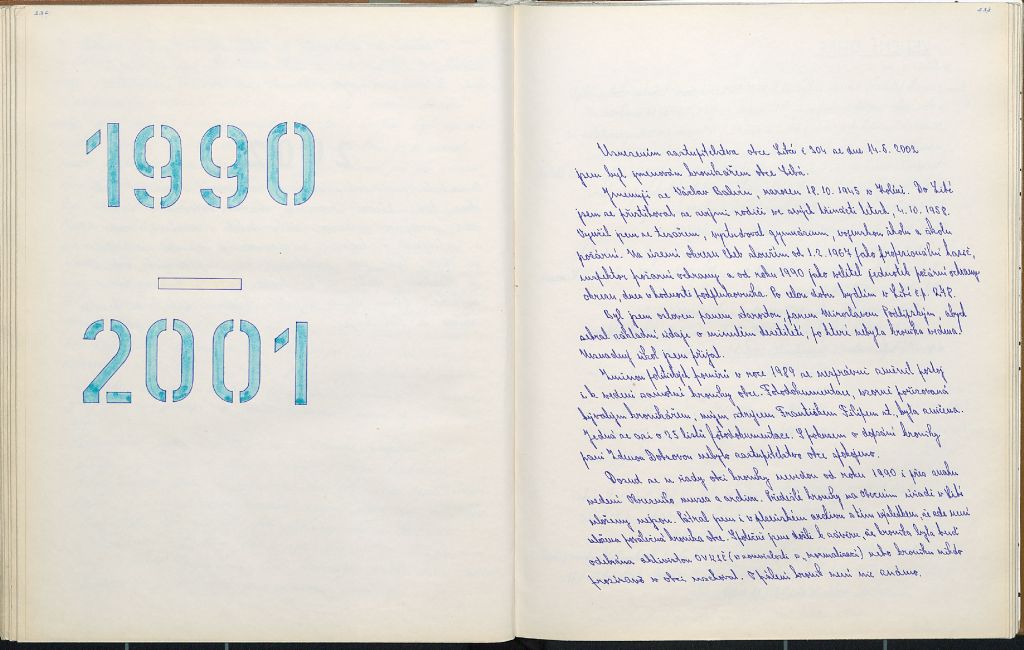 236
1990
2001
237
Usnesením zastupitelstva obce Libá č 304 ze dne 14.8. 2002
jsem byl jmenován kronikářem obce Libá.
Jmenuji se Václav narozen 18. 10. 1945 v Kolíně. Do Libé
jsem se přistěhoval se svými rodiči ve svých třinácti letech, 4. 10. 1958.
Vyučil jsem se tesařem, vystudoval gymnázium, vojenskou školu a školu
požární. Na území okresu Cheb sloužím od 1. 2. 1967 jako profesionální hasič,
inspektor požární ochrany a od roku 1990 jako velitel jednotek požární ochrany
okresu, dnes v hodnosti podplukovníka. Po celou dobu bydlím v Libé č.p. 278.
Byl jsem osloven panem starostou, panem Miroslavem abych
sebral základní údaje o minulém desetiletí, po které nebyla kronika vedena.
úkol jsem přijal.
Změnou politických poměrů v roce 1989 se nesprávně změnil postoj
i k vedení samotné kroniky obce. Fotodokumentace, vzorně pořizovaná
bývalým kronikářem, mým strýcem Františkem Filipem st. byla zničena.
Jedná se asi o 25 listů fotodokumentace. S pokusem o dopsání kroniky
paní Zdenou nebylo zastupitelstvo obce spokojeno.
Dosud se u řady obcí kroniky nevedou od roku 1990 i přes snahu
vedení Okresního muzea a archivu. Předešlé kroniky na Obecním úřadě v Libé
uloženy nejsou. Pátral jsem i v plzeňském archivu s tím výsledkem, že zde není
uložena poválečná kronika obce. Společně jsme došli k závěru, že kronika byla buď
odebrána aktivistou OV KSČ (v souvislosti s „normalizací) nebo kroniku někdo
prozíravě v obci uschoval. O pálení kronik není nic známo.